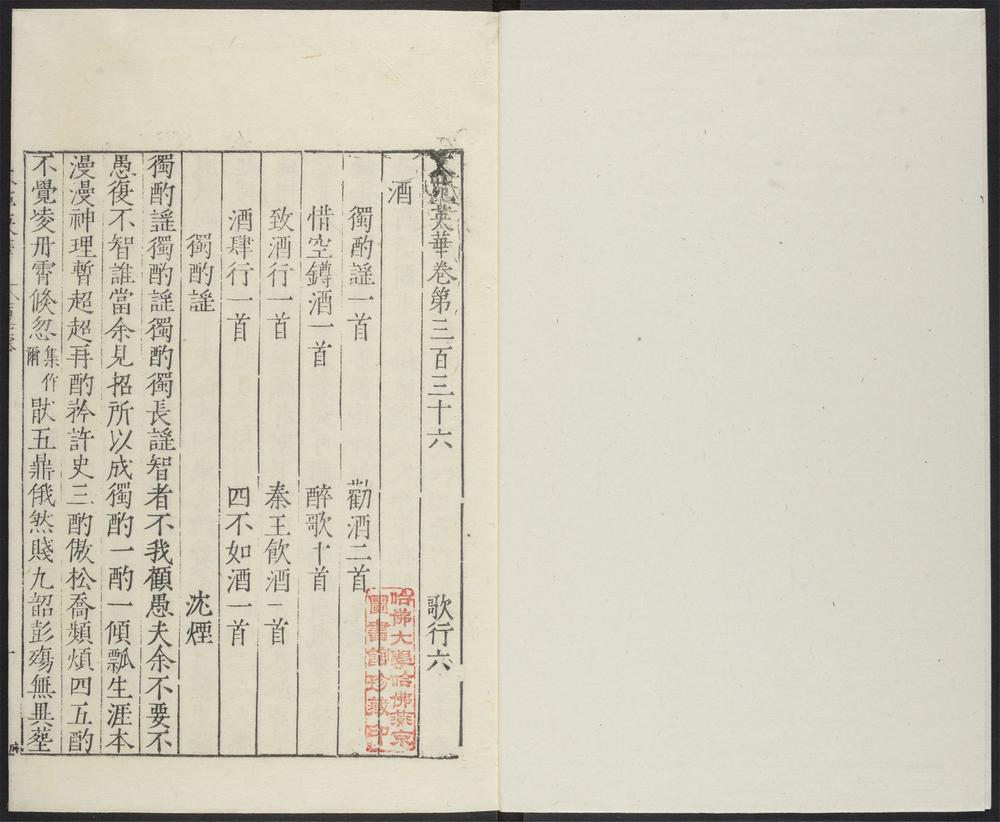 文苑英華卷第三百三十六 歌行六
酒
獨酌謡一首 勸酒二首
惜空鐏酒一首 醉歌十首
致酒行一首 秦王飲酒一首
酒肆行一首 四不如酒一首
獨酌謡 沈煙
獨酌謡獨酌謡獨酌獨長謡智者不我顧愚夫余不要不
愚復不智誰當余見招所以成獨酌一酌一傾瓢生涯本
漫漫神理暫超超再酌矜許史三酌傲松喬頻煩四五酌
不覺凌丹霄倐忽集作爾猒五鼎俄然賤九韶彭殤無異葬
哈佛大學哈佛燕京
圖書館珍藏印